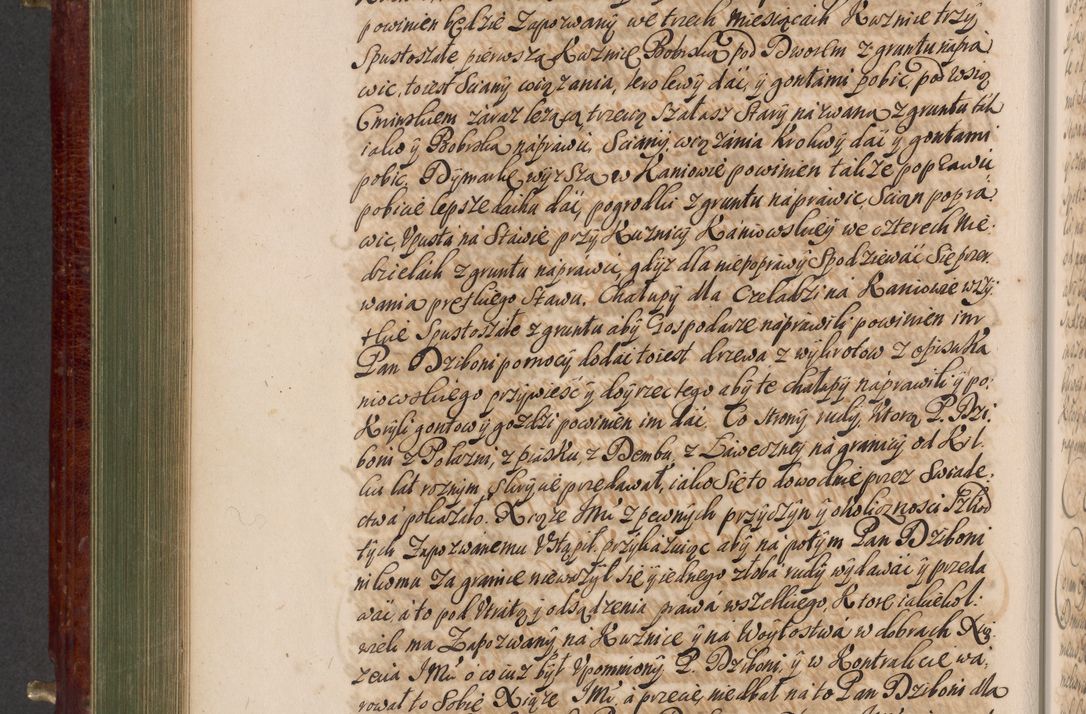 powinien będzie Zapozwany we trzech Miesiącach Kuznice trzy
Spustoszałe pierwszą Kuznicę Bobrską pod Dworem z gruntu napra
wic, toiest Sciany wiązania, krolewy dać, y gontami pobić, pod Wsią
Gminskiem zaraz leżącą trzecią Szałasz Stary nazwana z gruntu tak
iako y Bobrska naprawić, Sciany wiązania Krokwy dać y gontami
pobić, Dymarkę wyższą w Kaniowie powinien także poprawić
pobicie lepsze dachu dać, pogrodki z gruntu naprawic, Scian popra
wic, Vpustu ná Stawie przy Kuznicy Kaniowskiey we czterech Nie:
dzielach z gruntu naprawić, gdyż dla niepoprawy Spodziewać Się przer
wania prętkiego Stawu, Chałupy dla Czeladzi na Kaniowie wszy:
tkie Spustoszałe z gruntu aby Gospodarze naprawili powinien im
Pan Dziboni pomocy dodać toiest drzewa z wykrotow z
niowskiego przywieść y doyrzec tego aby te chałupy naprawili y po:
kryli gontow y gozdzi powinien im dać. Co strony rudy, ktorą P. Dzi
boni z Połazni, z piasku, z Demba, z Zawieczney ná granicy od Kil
ku lat roznym, skrycie przedawał, iako Się to dowodnie przez Swiade:
ctwa pokazało. Xiąże JMć z pewnych przyczyn y okoliczności Szkod
tych Zapozwanemu Vstąpił. przykazuiąc aby na potym Pan Dziboni
nikomu Za granice nieważył się y iednego złoba rudy wydawać y przeda
wać, a to pod Vtratą y odsądzenia prawa wszelkiego, Ktore iakiekol:
wiek ma Zapozwany, na Kuznice y ná Woytostwa w dobrach Xią:
żęcia JMć o co iuż był Vpommony P. Dziboni, y w Kontrakcie wa:
rował to Sobie Xiąże JMć, a przecię niedbał na to Pan Dziboni dla